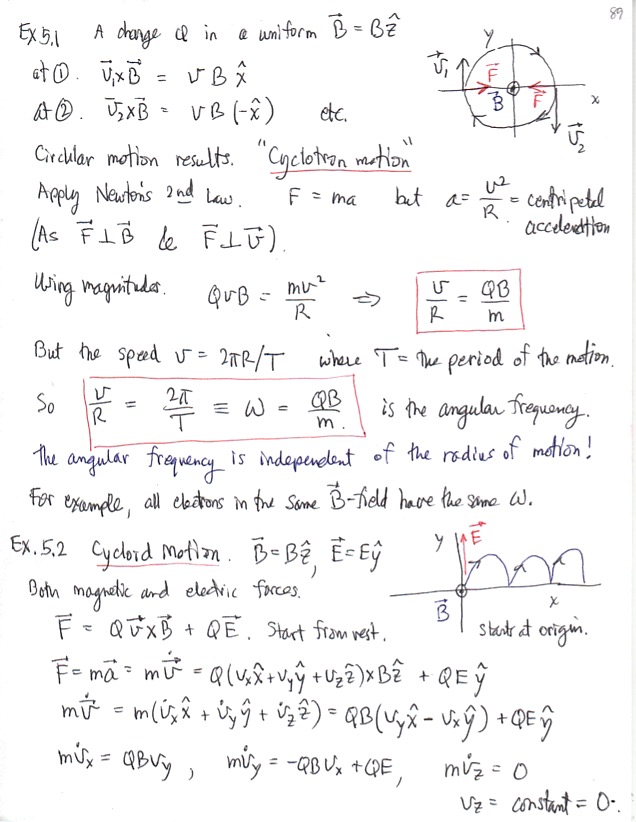 89
Ex 5.1 A charge Q in a uniform B⃗ = Bẑ
at ①. v⃗₁×B⃗ = vBx̂
At ②. v⃗₂×B⃗ = vB(-x̂) etc.
y
v⃗₁ F⃗ B⃗ F⃗ x
v⃗₂
Circular motion results. "Cyclotron motion"
Apply Newton's 2nd Law. F = ma but a = v²/R = centripetal acceleration
(As F⃗⊥B⃗ & F⃗⊥v⃗).
Using magnitudes. QvB = mv²/R ⇒ v/R = QB/m
But the speed v = 2πR/T where T = the period of the motion.
So v/R = 2π/T ≡ ω = QB/m. is the angular frequency.
The angular frequency is independent of the radius of motion!
For example, all electrons in the same B⃗-field have the same ω.
Ex. 5.2 Cycloid Motion. B⃗ = Bẑ, E⃗ = Eŷ
y E⃗
B⃗ x
Both magnetic and electric forces.
F⃗ = Qv⃗×B⃗ + QE⃗. Start from rest.
starts at origin.
F⃗ = ma⃗ = mv⃗̇ = Q(vₓx̂ + v_yŷ + v_zẑ)×Bẑ + QEŷ
mv⃗̇ = m(v̇ₓx̂ + v̇_yŷ + v̇_zẑ) = QB(v_yx̂ - vₓŷ) + QEŷ
mv̇ₓ = QBv_y, mv̇_y = -QBvₓ + QE, mv̇_z = 0
v_z = constant = 0.